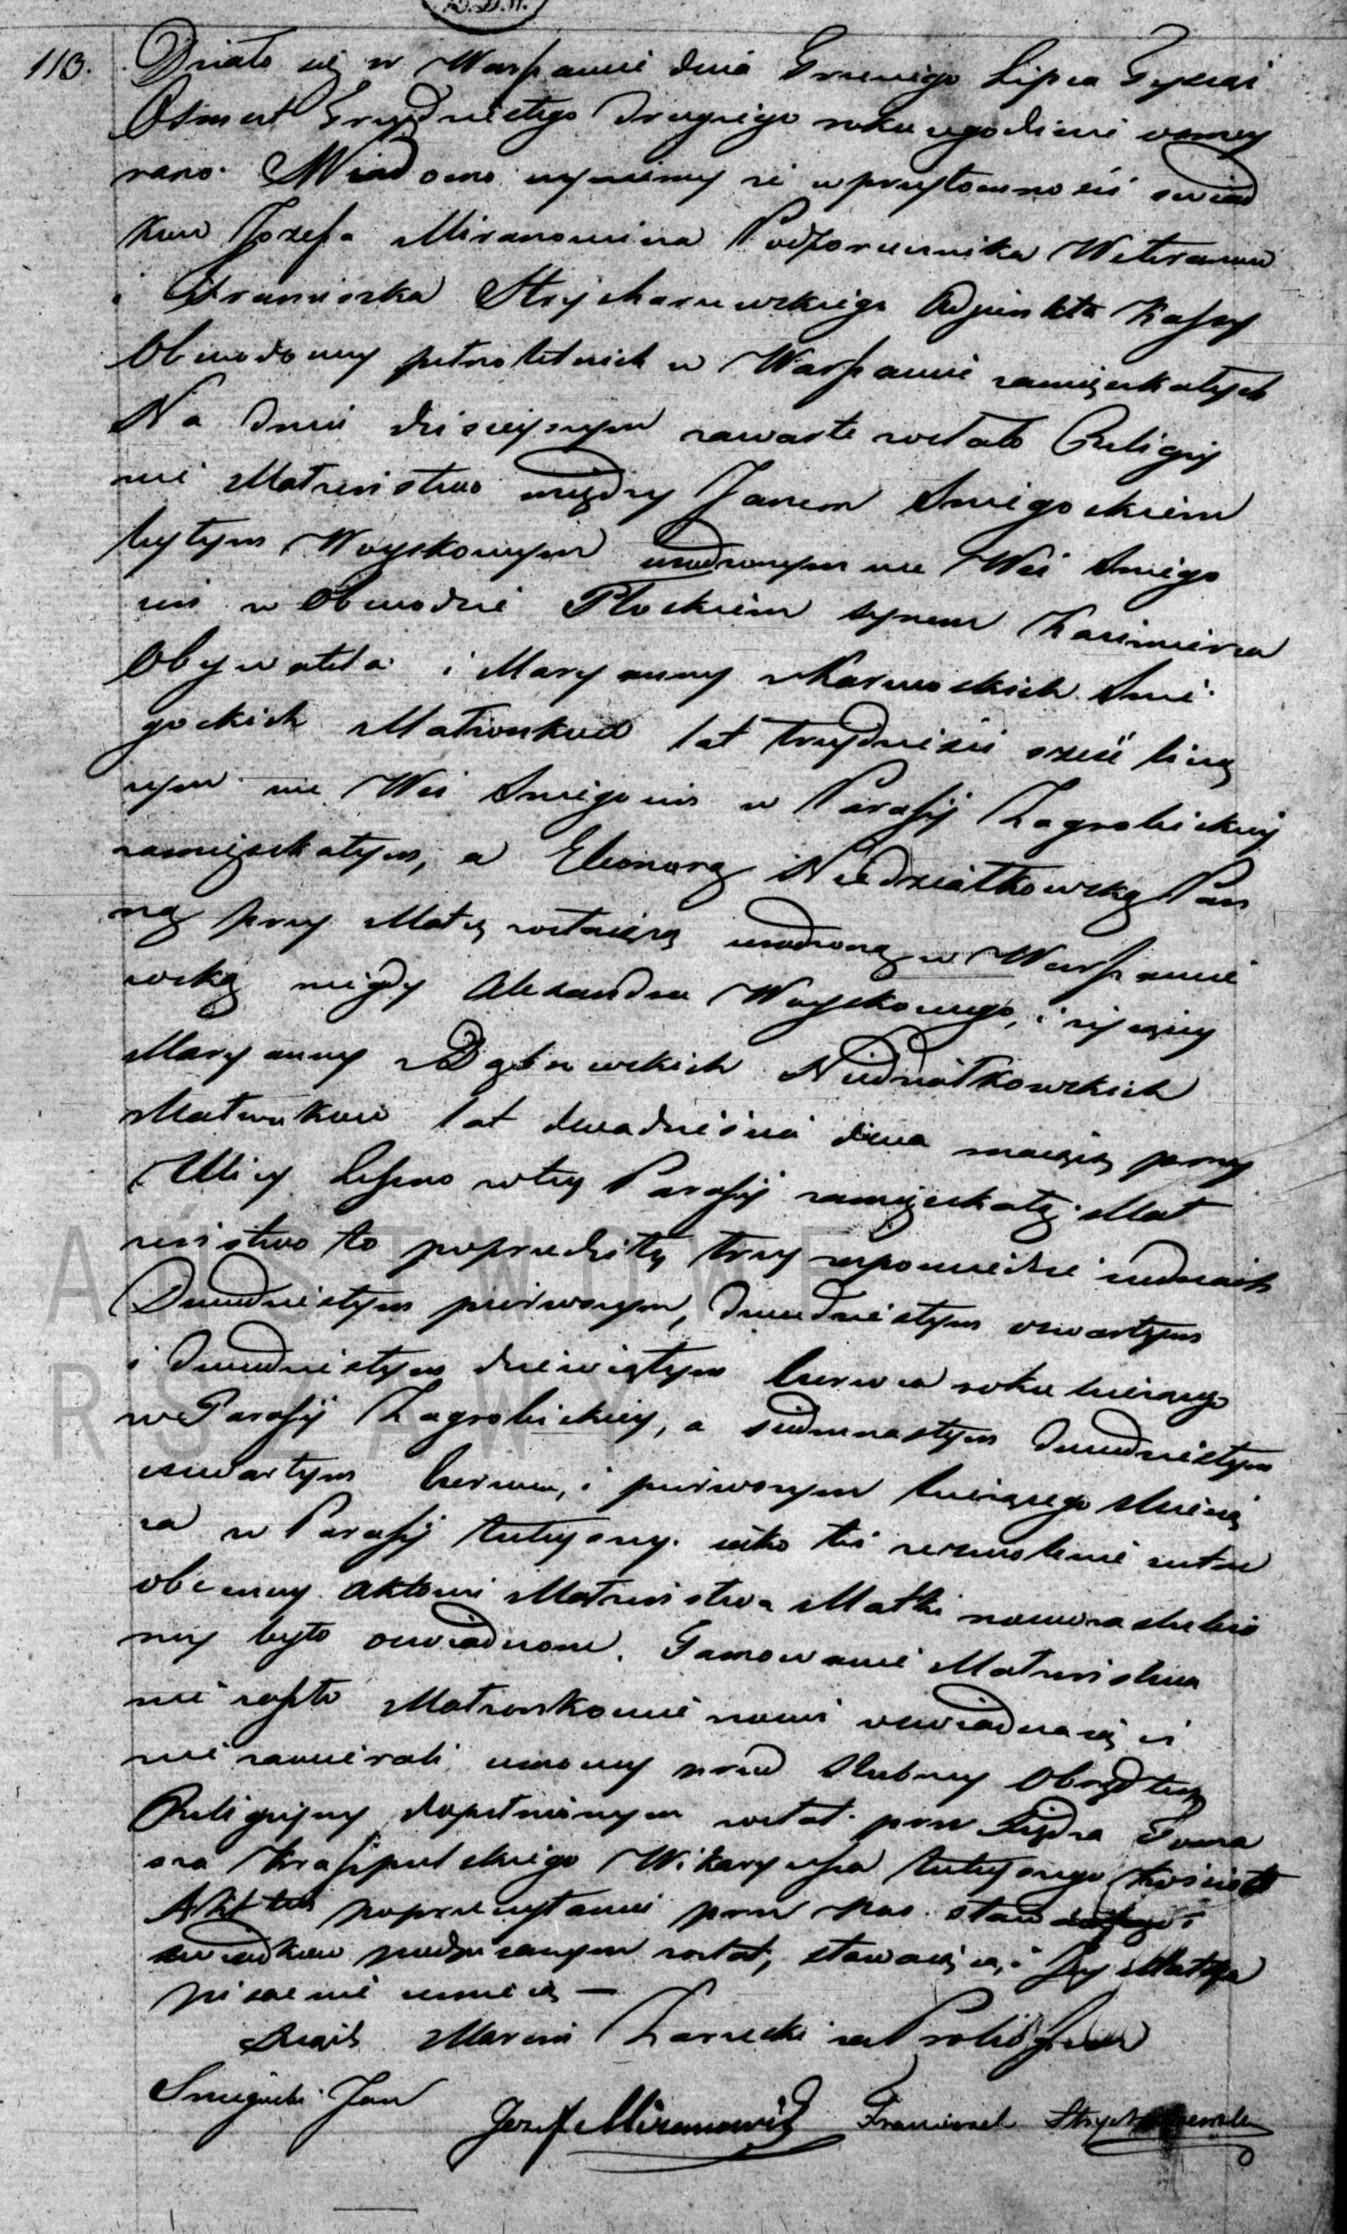 113. Działo się w Warszawie dnia Trzeciego Lipca Tysiąc
Ośmset Trzydziestego Drugiego roku o godzinie ósmey
rano. Wiadomo czyniemy że w przytomności świad
ków Jozefa Miranowicza Podporucznika Weteranów
i Franciszka Strycharzewskiego Adjunkta Kassy
Obwodowey pełnoletnich w Warszawie zamięszkałych
Na dniu dzisieyszym zawarte zostało Religiy
nie Małżeństwo między Janem Smigockiem
byłym Woyskowym urodzonym we Wsi Smigo
cin w Obwodzie Płockiem synem Kazimierza
Obywatela i Maryanny z Karwoskich Smi
gockich Małżonków lat trzydzieści sześć liczą
cym we Wsi Smigocin w Parafij Zagrobickiey
zamięszkałym, a Eleonorą Niedziałkowską Pan
ną przy Matce zostaiącą urodzoną w Warszawie
córką niegdy Alexandra Woyskowego, i żyjącey
Maryanny z Dąbrowskich Niedziałkowskich
Małżonków lat dwadzieścia dwa maiącą przy
Ulicy Leszno w tey Parafij zamięszkałą. Mał
żeństwo to poprzedziły trzy zapowiedzie w dniach
Dwudziestym pierwszym, dwudziestym czwartym
i dwudziestym dziewiątym Czerwca roku bieżącego
w Parafij Zagrobickiey, a siedmnastym dwudziestym
czwartym Czerwca, i pierwszym bieżącego Miesią
ca w Parafij tuteyszey. iako też zezwolenie ustne
obecney Aktowi Małżeństwa Matki nowozaślubio
ney było oświadczone. Tamowanie Małżeństwa
nie zaszło Małżonkowie nowi oświadczaią iż
nie zawierali umowy przed ślubney Obrzęd ten
Religiyny dopełnionym został przez Xiędza Toma
sza Wikaryusza tuteyszego Kościoła
Akt ten po przeczytaniu przez Nas. i
świadków podpisanym został, stawaiąca i Jey Matka
pisać nie umieią —
Xiądz Marcin Zarzecki za Proboszcza
Smigocki Jan
Jozef Miranowicz Franciszek Strycharzewski
A Ń S T W O W E
R S Z A W Y